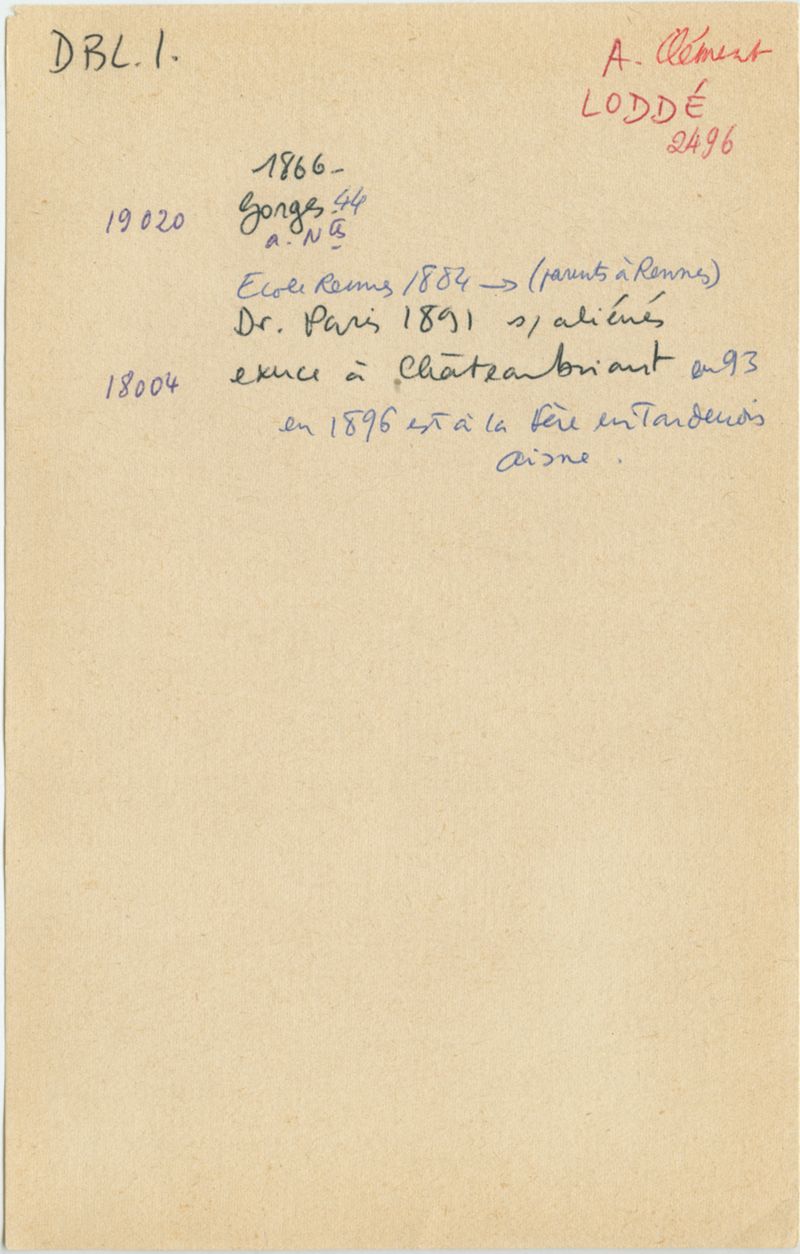 DBL.I.
A. Clément
LODDÉ
2496
1866-
19020 Gorges 44
a. Ntes
Ecole Rennes 1884 → (parents à Rennes)
Dr. Paris 1891 s/ aliénés
18004 exerce à Châteaubriant en 93
en 1896 est à la Fère en Tardenois
Aisne.